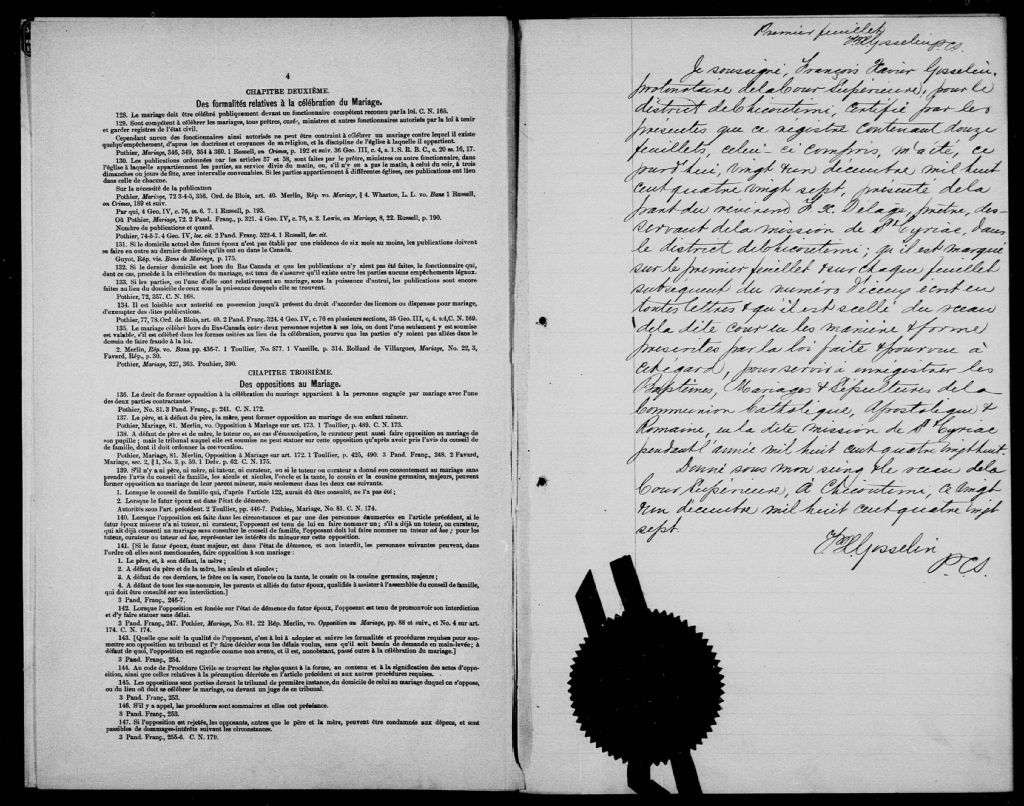 4
CHAPITRE DEUXIÈME.
Des formalités relatives à la célébration du Mariage.
128. Le mariage doit être célébré publiquement devant un fonctionnaire compétent reconnu par la loi. C. N. 165.
129. Sont compétents à célébrer les mariages, tous prêtres, curés, ministres et autres fonctionnaires autorisés par la loi à tenir
et garder registres de l'état civil.
Cependant aucun des fonctionnaires ainsi autorisés ne peut être contraint à célébrer un mariage contre lequel il existe
quelqu'empêchement, d'après les doctrines et croyances de sa religion, et la discipline de l'église à laquelle il appartient.
Pothier, Mariage, 346, 349, 354 à 360. 1 Russell, on Crimes, p. 192 et suiv. 36 Geo. III, c. 4, s. 1. S. R. B. C., c. 20 ss. 16, 17.
130. Les publications ordonnées par les articles 57 et 58, sont faites par le prêtre, ministre ou autre fonctionnaire, dans
l'église à laquelle appartiennent les parties, au service divin du matin, ou, s'il n'y en a pas le matin, à celui du soir, à trois
dimanches ou jours de fête, avec intervalles convenables. Si les parties appartiennent à différentes églises, ces publications ont lieu
dans celle de chacune.
Sur la nécessité de la publication
Pothier, Mariage, 72 3-4-5, 356. Ord. de Blois, art. 40. Merlin, Rép vo. Mariage, § 4. Wharton, L. L. vo. Bans 1 Russell,
on Crimes, 189 et suiv.
Par qui, 4 Geo. IV, c. 76, ss. 6. 7. 1 Russell, p. 193.
Où Pothier, Mariage, 72. 2 Pand. Franç., p. 321. 4 Geo. IV, c. 76, s. 2. Lewis, on Mariage, 8, 22. Russell, p. 190.
Nombre de publications et quand.
Pothier, 74-5-7. 4 Geo. IV, loc. cit. 2 Pand. Franç. 322-4. 1 Russell, loc. cit.
131. Si le domicile actuel des futurs époux n'est pas établi par une résidence de six mois au moins, les publications doivent
se faire en outre au dernier domicile qu'ils ont eu dans le Canada.
Guyot, Rép. vis. Bans de Mariage, p. 175.
132. Si le dernier domicile est hors du Bas Canada et que les publications n'y aient pas été faites, le fonctionnaire qui,
dans ce cas, procède à la célébration du mariage, est tenu de s'assurer qu'il existe entre les parties aucuns empêchements légaux.
133. Si les parties, ou l'une d'elle sont relativement au mariage, sous la puissance d'autrui, les publications sont encore
faites au lieu du domicile de ceux sous la puissance desquels elle se trouvent.
Pothier, 72, 357. C. N. 168.
134. Il est loisible aux autorité en possession jusqu'à présent du droit d'accorder des licences ou dispenses pour mariage,
d'exempter des dites publications.
Pothier, 77, 78. Ord. de Blois, art. 40. 2 Pand. Franç. 324. 4 Geo. IV, c. 76 en plusieurs sections, 35 Geo. III, c, 4. s.4, C. N. 169.
135. Le mariage célébré hors du Bas-Canada entre deux personnes sujettes à ses lois, ou dont l'une seulement y est soumise
est valable, s'il est célébré dans les formes usitées au lieu de la célébration, pourvu que les parties n'y soient pas allées dans le
dessein de faire fraude à la loi.
2. Merlin, Rép. vo. Bans. pp. 436-7. 1 Toullier, No. 577. 1 Vazeille. p. 314. Rolland de Villargues, Mariage, No. 22, 3,
Favard, Rép., p. 30.
Pothier, Mariage, 327, 363. Poubier, 390.
CHAPITRE TROISIÈME.
Des oppositions au Mariage.
136. Le droit de former opposition à la célébration du mariage appartient à la personne engagée par mariage avec l'une
des deux parties contractantes.
Pothier, No. 81. 3 Pand. Franç., p. 241. C. N. 172.
137. Le père, et à défaut du père, la mère, peut former opposition au mariage de son enfant mineur.
Pothier, Mariage, 81. Merlin, vo. Opposition à Mariage sur art. 173. 1 Toullier, p. 489. C. N. 173.
138. A défaut de père et de mère, le tuteur ou, au cas d'émancipation, le curateur peut aussi faire opposition au mariage de
son pupille ; mais le tribunal auquel elle est soumise ne peut statuer sur cette opposition qu'après avoir pris l'avis du conseil de
de famille, dont il doit ordonner la convocation.
Pothier, Mariage, 81. Merlin, Opposition à Mariage sur art. 172. 1 Toullier, p. 425, 490. 3 Pand. Franç., 248. 2 Favard,
Mariage, sec. 2, § 1, No. 3, p. 59. 1 Delv. p. 62. C. N. 175.
139. S'il n'y a ni père, ni mère, ni tuteur, ni curateur, ou si le tuteur ou curateur a donné son consentement au mariage sans
prendre l'avis du conseil de famille, les aïeuls et aïeules, l'oncle et la tante, le cousin et la cousine germains, majeurs, peuvent
former opposition au mariage de leur parent mineur, mais seulement dans les deux cas suivants.
1. Lorsque le conseil de famille qui, d'après l'article 122, aurait dû être consulté, ne l'a pas été ;
2. Lorsque le futur époux est dans l'état de démence.
Autorités sous l'art. précédent. 2 Toullier, pp. 446-7. Pothier, Mariage, No. 81. C. N. 174.
140. Lorsque l'opposition est faite dans les circonstances et par une des personnes énumérées en l'article précédent, si le
futur époux mineur n'a ni tuteur, ni curateur, l'opposant est tenu de lui en faire nommer un ; s'il a déjà un tuteur, ou curateur,
qui ait déjà consenti au mariage sans consulter le conseil de famille, l'opposant doit lui faire nommer un tuteur ad hoc ; pour les
tuteur, curateur ou tuteur ad hoc, représenter les intérêts du mineur sur cette opposition.
141. [Si le futur époux, étant majeur, est dans l'état de démence, et non interdit, les personnes suivantes peuvent, dans
l'ordre où elles sont mentionnées, faire opposition à son mariage :
1. Le père, et, à son défaut, la mère ;
2. A défaut du père et de la mère, les aïeuls et aïeules ;
3. A défaut de ces derniers, le frère ou la sœur, l'oncle ou la tante, le cousin ou la cousine germains, majeurs ;
4. A défaut de tous les sus-nommés, les parents et alliés du futur époux, qualifiés à assister à l'assemblée du conseil de famille,
qui doit être consulté sur son interdiction.]
3 Pand. Franç., 246-7.
142. Lorsque l'opposition est fondée sur l'état de démence du futur époux, l'opposant est tenu de promouvoir son interdiction
et d'y faire statuer sans délai.
3 Pand. Franç., 247. Pothier, Mariage, No. 81. 22 Rép. Merlin, vo. Opposition au Mariage, pp. 88 et suiv., et No. 4 sur art.
174. C. N. 174.
143. [Quelle que soit la qualité de l'opposant, c'est à lui à adopter et suivre les formalités et procédures requises pour sou-
mettre son opposition au tribunal et l'y faire décider sous les délais voulus, sans qu'il soit besoin de demande en main-levée ; à
défaut de quoi, l'opposition est regardée comme non avenu, et il est, nonobstant, passé outre à la célébration du mariage.]
3 Pand. Franç., 254.
144. Au code de Procédure Civile se trouvent les règles quant à la forme, au contenu et à la signification des actes d'oppo-
sition, ainsi que celles relatives à la péremption décrétée en l'article précédent et aux autres procédures requises.
145. Les oppositions sont portées devant le tribunal de première instance, du domicile de celui au mariage duquel on s'oppose,
ou du lieu où doit se célébrer le mariage, ou devant un juge de ce tribunal.
3 Pand. Franç., 253.
146. S'il y a appel, les procédures sont sommaires et elles ont préséance.
3 Pand. Franç., 253.
147. Si l'opposition est rejetée, les opposants, autres que le père et la mère, peuvent être condamnés aux dépens, et sont
passibles de dommages-intérêts suivant les circonstances.
3 Pand. Franç., 255-6. C. N. 179.
Premier feuillet
FX Gosselin P.C.S.
Je soussigné, François Xavier Gosselin,
protonotaire de la Cour Supérieure, pour le
district de Chicoutimi, certifie par les
présentes que ce régistre contenant douze
feuillets, celui-ci compris, m'a été, ce
jourd'hui, vingt & un décembre mil huit
cent quatre vingt sept, présenté de la
part du révérend F. X. Delage, prêtre, des-
servant de la mission de St Cyriac, dans
le district de Chicoutimi ; qu'il est marqué
sur le premier feuillet & sur chaque feuillet
subséquent du numéro d'iceux écrit en
toutes lettres & qu'il est scellé du sceau
de la dite cour en les manière & forme
prescrites par la loi faite & pourvue à
cet égard, pour servir à enrégistrer les
Baptêmes, Mariages & Sépultures de la
Communion Catholique, Apostolique &
Romaine, en la dite mission de St Cyriac
pendant l'année mil huit cent quatre vingt huit.
Donné sous mon seing & le sceau de la
Cour Supérieure, à Chicoutimi, ce vingt
& un décembre mil huit cent quatre vingt
sept
FX Gosselin
P.C.S.